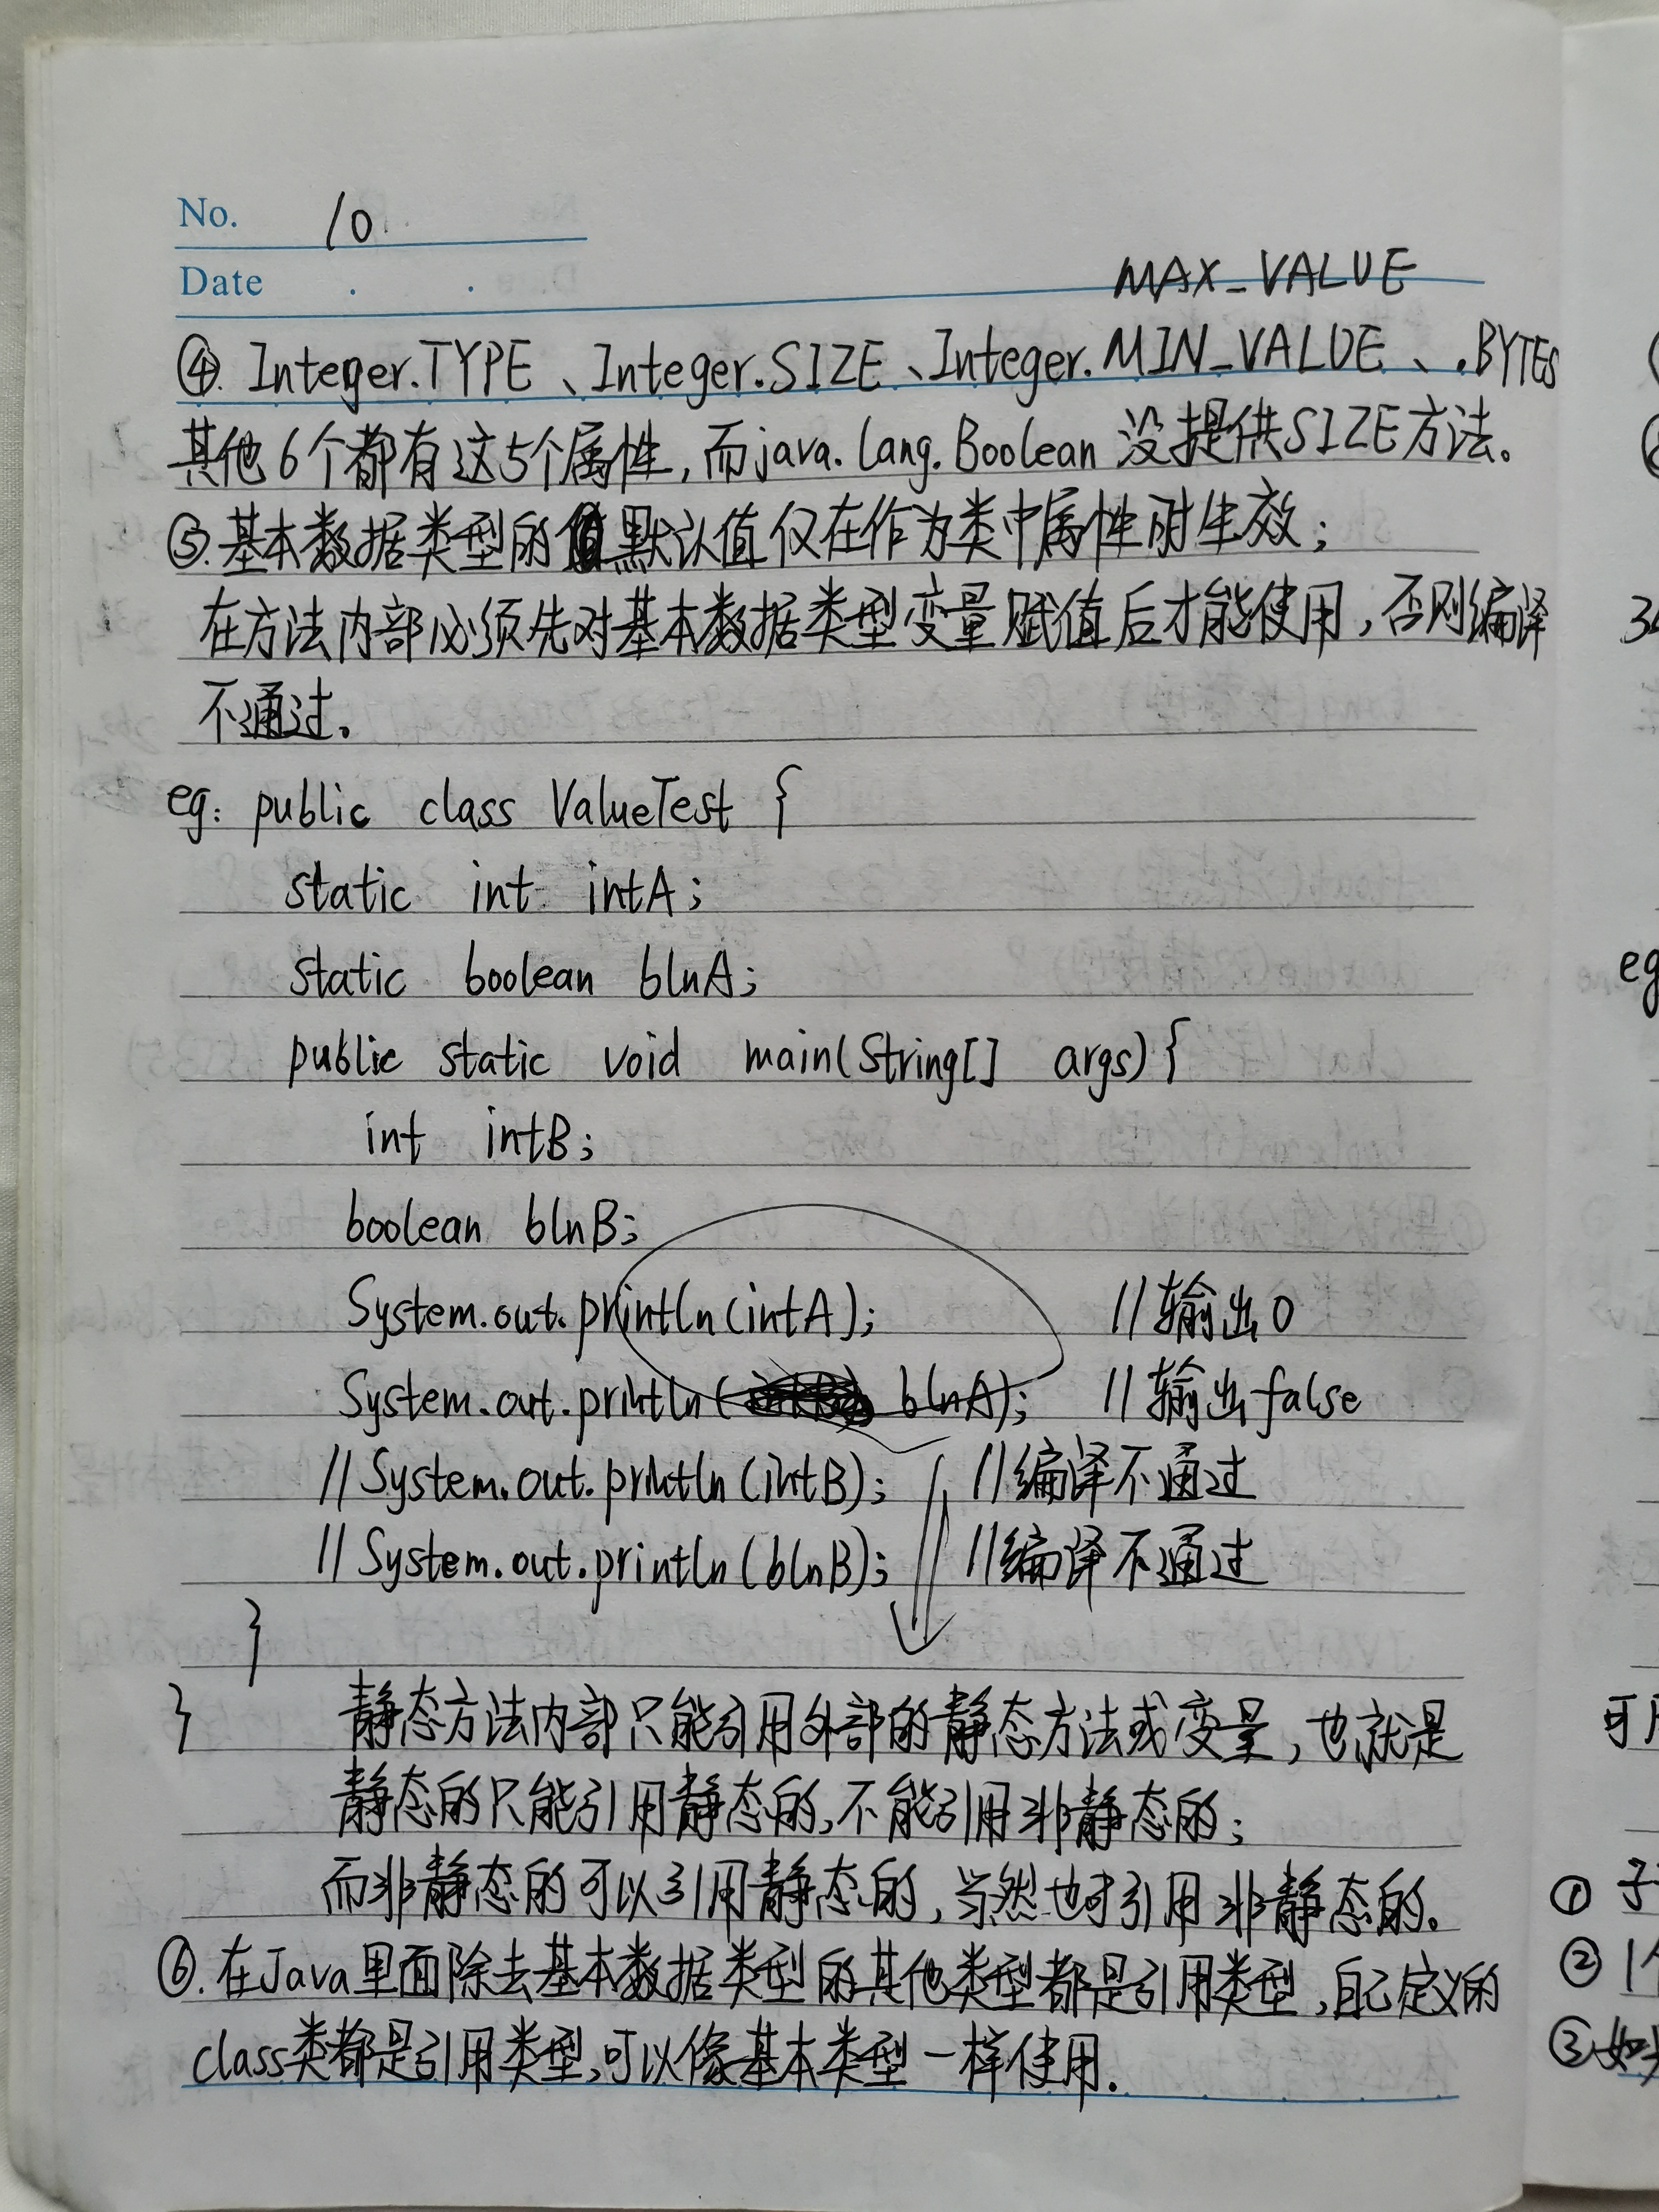 No. 10
Date . .
MAX_VALUE
④. Integer.TYPE、Integer.SIZE、Integer.MIN_VALUE、.BYTES
其他6个都有这5个属性,而java.lang.Boolean没提供SIZE方法。
⑤.基本数据类型的默认值仅在作为类中属性时生效;
在方法内部必须先对基本数据类型变量赋值后才能使用,否则编译
不通过。
eg: public class ValueTest {
static int intA;
static boolean blnA;
public static void main(String[] args){
int intB;
boolean blnB;
System.out.println(intA); //输出0
System.out.println( blnA); //输出false
//System.out.println(intB); //编译不通过
//System.out.println(blnB); //编译不通过
}
} 静态方法内部只能引用外部的静态方法或变量,也就是
静态的只能引用静态的,不能引用非静态的;
而非静态的可以引用静态的,当然也可引用非静态的.
⑥.在Java里面除去基本数据类型的其他类型都是引用类型,自己定义的
class类都是引用类型,可以像基本类型一样使用.
eg
①
② 1个
③